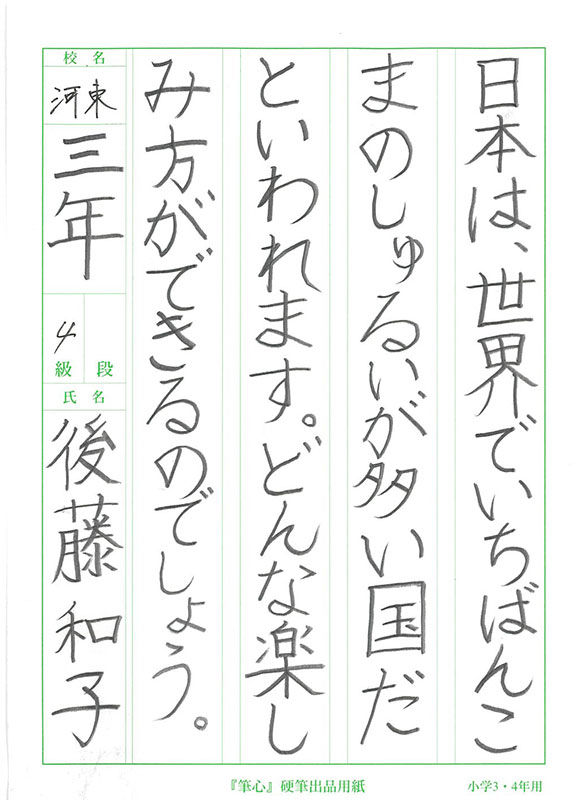 日本は、世界でいちばんこ
まのしゅるいが多い国だ
といわれます。どんな楽し
み方ができるのでしょう。
校名
河東
三年
4
級 段
氏名
後藤和子
『筆心』硬筆出品用紙
小学3・4年用